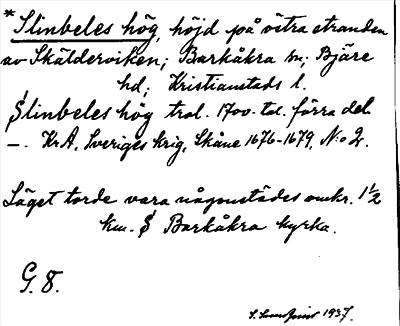 *Slinbeles hög, höjd på östra stranden
av Skälderviken; Barkåkra sn; Bjäre
hd; Kristianstads l.
Slinbeles hög trol. 1700-tal. förra del
–. KrA, Sveriges krig, Skåne 1676-1679, N:o 2.
Läget torde vara någonstädes omkr. 1½
km. S Barkåkra kyrka.
G. 8.
S. Lundqvist 1937.